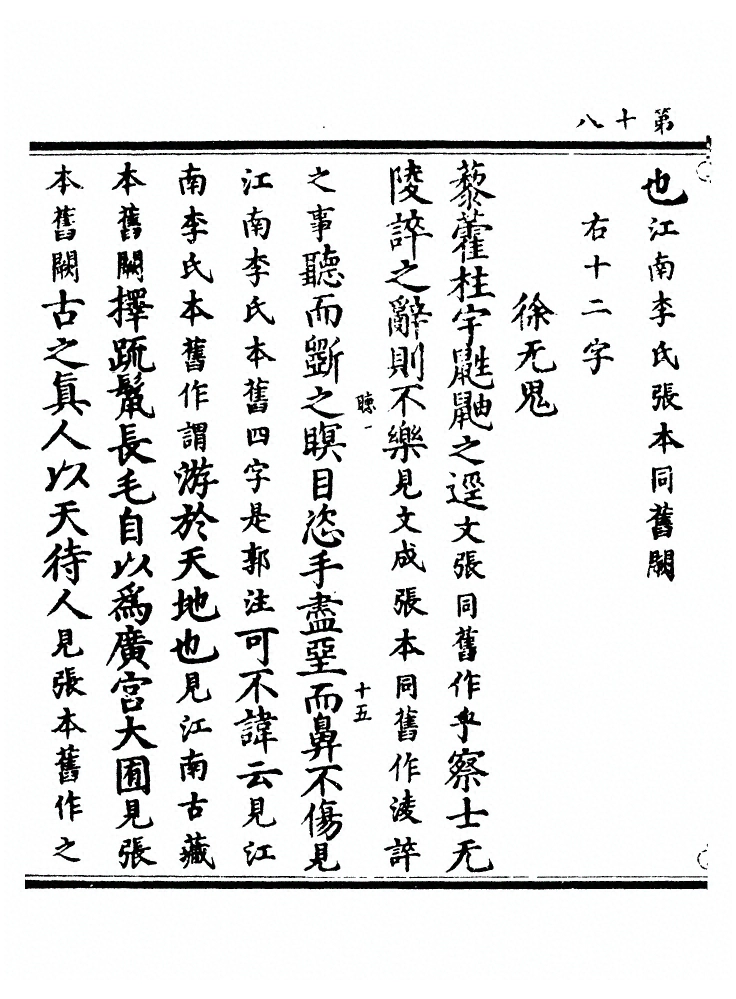 第十八
也江南李氏張本同舊闕
右十二字
徐无鬼
藜藋柱宇鼪鼬之逕文張同舊作乎察士无
陵誶之辭則不樂見文成張本同舊作淩誶
之事聽而斲之瞑目恣手盡堊而鼻不傷見
聽一
十五
江南李氏本舊四字是郭注可不諱云見江
南李氏本舊作謂游於天地也見江南古藏
本舊闕擇疏鬣長毛自以為廣宮大囿見張
本舊闕古之真人以天待人見張本舊作之